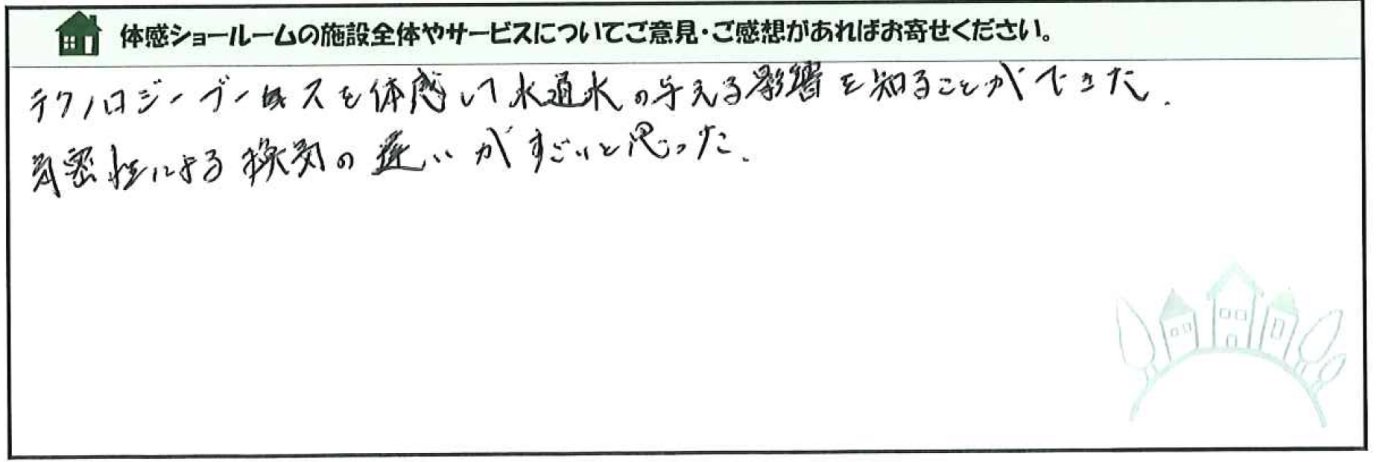 体感ショールームの施設全体やサービスについてご意見・ご感想があればお寄せください。
テクノロジーブースを体感して水道水の与える影響を知ることができた.
気密性による換気の違いがすごいと思った.